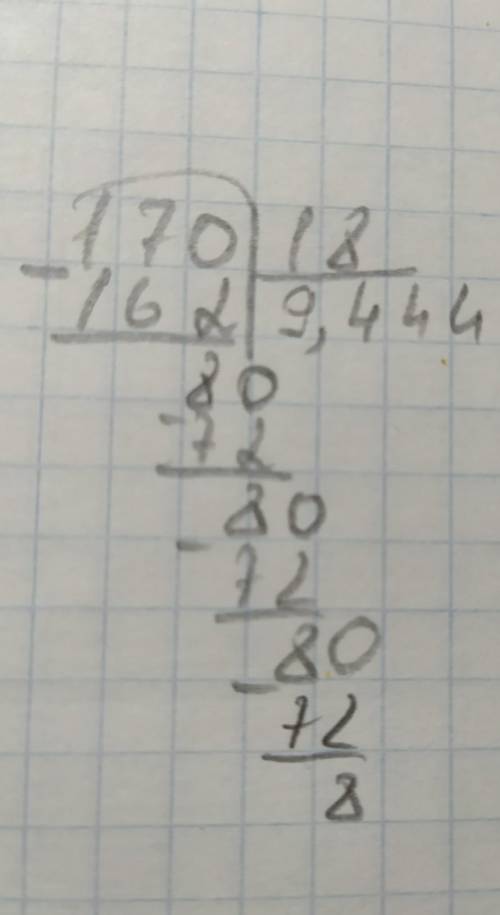 170 18
- 162 9,444
80
- 72
80
- 72
80
- 72
8